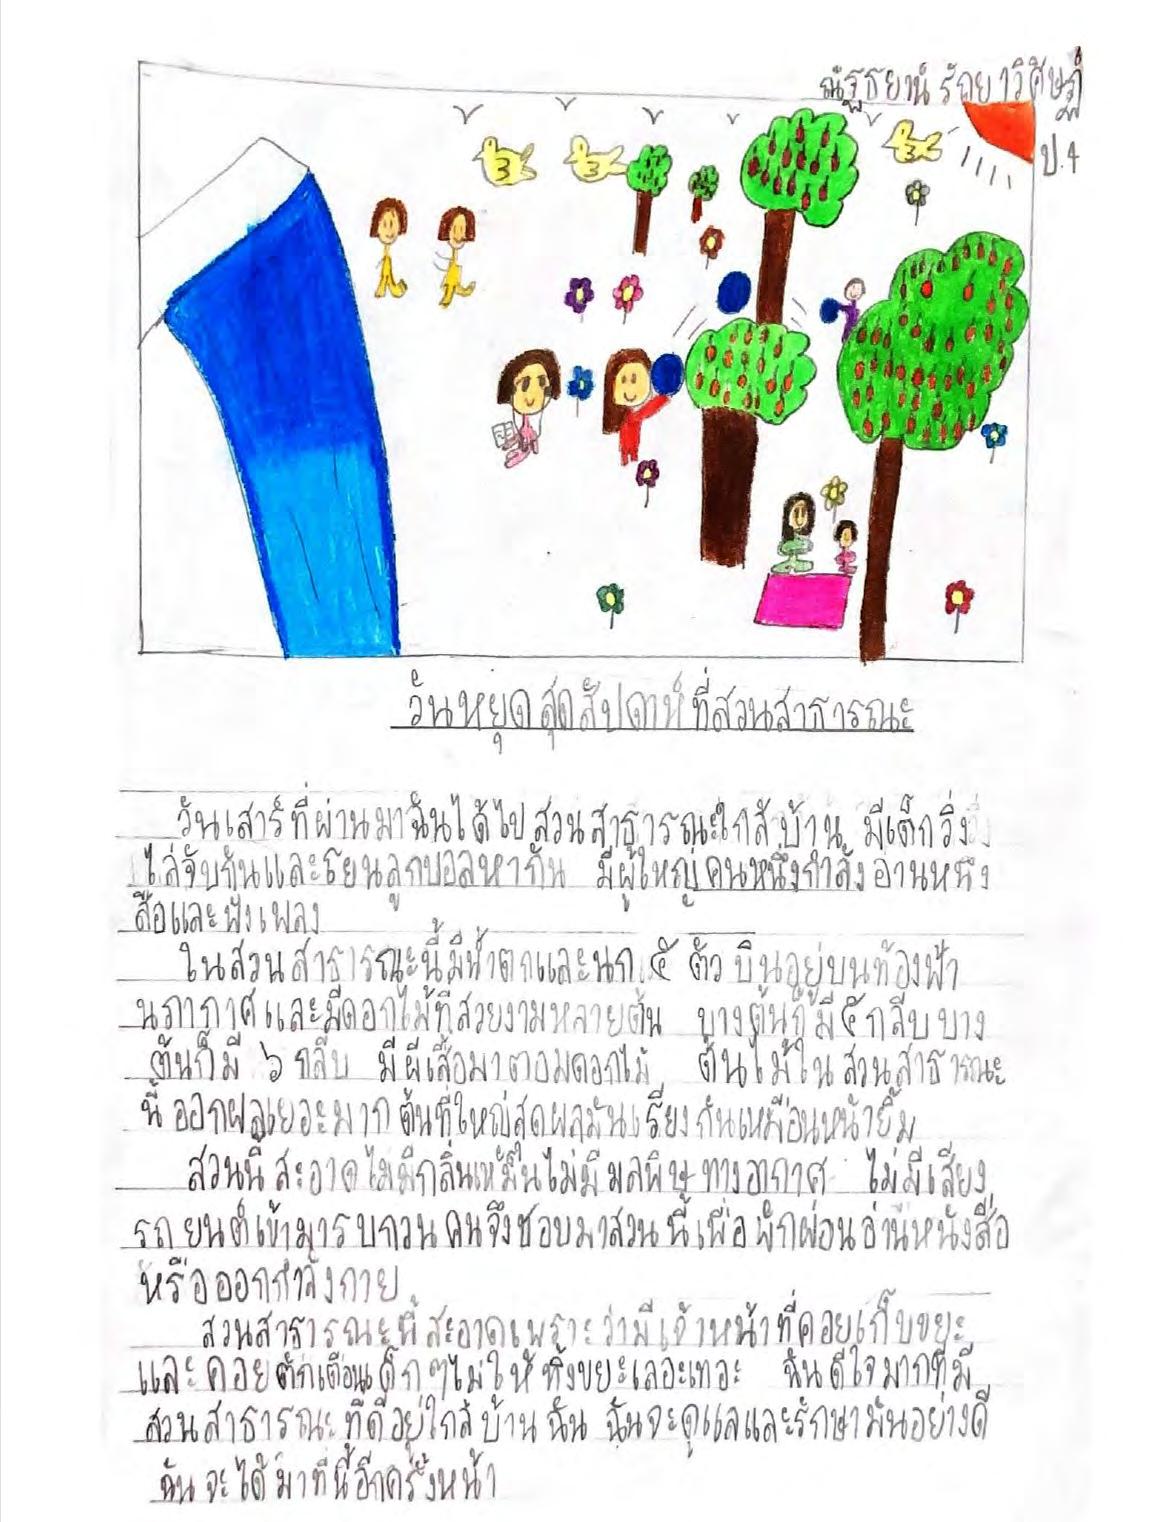 ณัฐธยาน์ รัถยาวิศิษฏ์
ป.4
วันหยุดสุดสัปดาห์ที่สวนสาธารณะ
วันเสาร์ที่ผ่านมาฉันได้ไปสวนสาธารณะใกล้บ้าน มีเด็กวิ่ง
ไล่จับกันและโยนลูกบอลหากัน มีผู้ใหญ่คนหนึ่งกำลังอ่านหนัง
สือและฟังเพลง
ในสวนสาธารณะนี้มีน้ำตกและนก ๕ ตัว บินอยู่บนท้องฟ้า
นภากาศและมีดอกไม้ที่สวยงามหลายต้น บางต้นก็มี ๕ กลีบ บาง
ต้นก็มี ๖ กลีบ มีผีเสื้อมาตอมดอกไม้ ต้นไม้ในสวนสาธารณะ
นี้ออกผลเยอะมาก ต้นที่ใหญ่สุดผลมันเรียงกันเหมือนหน้ายิ้ม
สวนนี้สะอาดไม่มีกลิ่นเหม็นไม่มีมลพิษทางอากาศ ไม่มีเสียง
รถยนต์เข้ามารบกวน คนจึงชอบมาสวนนี้เพื่อพักผ่อนอ่านหนังสือ
หรือออกกำลังกาย
สวนสาธารณะนี้สะอาดเพราะว่ามีเจ้าหน้าที่คอยเก็บขยะ
และคอยตักเตือนเด็กๆไม่ให้ทิ้งขยะเลอะเทอะ ฉันดีใจมากที่มี
สวนสาธารณะที่ดีอยู่ใกล้บ้านฉัน ฉันจะดูแลและรักษามันอย่างดี
ฉันจะได้มาที่นี้อีกครั้งหน้า